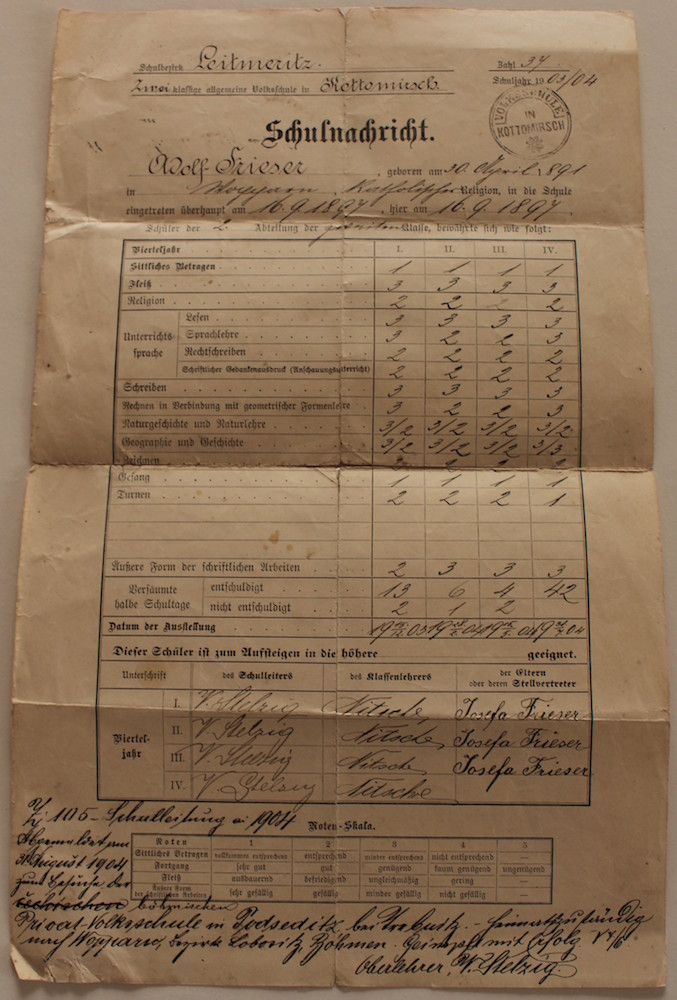 Schulbezirk Leitmeritz.
Zahl 34.
Zweiklassige allgemeine Volksschule in Kottomirsch.
Schuljahr 1903/04
VOLKSSCHULE
IN
KOTTOMIRSCH
Schulnachricht.
Adolf Frieser, geboren am 30. April 1891
in Wopparn, Katholischer Religion, in die Schule
eingetreten überhaupt am 16. 9. 1897, hier am 16. 9. 1897.
Schüler der 2. Abteilung der zweiten Klasse, bewährte sich wie folgt:
Vierteljahr I. II. III. IV.
Sittliches Betragen 1 1 1 1
Fleiß 3 3 3 3
Religion 2 2 2 2
Unterrichtssprache
Lesen 3 3 3 3
Sprachlehre 3 2 2 3
Rechtschreiben 2 2 2 2
Schriftlicher Gedankenausdruck (Anschauungsunterricht) 2 2 2 2
Schreiben 3 3 3 3
Rechnen in Verbindung mit geometrischer Formenlehre 3 2 2 3
Naturgeschichte und Naturlehre 3/2 3/2 3/2 3/2
Geographie und Geschichte 3/2 3/2 3/2 3/3
Zeichnen 2 2 2
Gesang 1 1 1 1
Turnen 2 2 2 1
Äußere Form der schriftlichen Arbeiten 2 3 3 3
Versäumte halbe Schultage
entschuldigt 13 6 4 42
nicht entschuldigt 2 1 2
Datum der Ausstellung
Dieser Schüler ist zum Aufsteigen in die höhere geeignet.
Unterschrift des Schulleiters des Klassenlehrers der Eltern oder deren Stellvertreter
Vierteljahr
I. V. Stelzig Nitsche, Josefa Frieser
II. V. Stelzig Nitsche Josefa Frieser
III. V. Stelzig Nitsche Josefa Frieser
IV. V. Stelzig Nitsche
Z. 105 - Schulleitung 1904
Noten-Skala.
Abgemeldet am
August 1904
zum Besuche der
böhmischen
Noten 1 2 3 4 5
Sittliches Betragen vollkommen entsprechend entsprechend minder entsprechend nicht entsprechend —
Fortgang sehr gut gut genügend kaum genügend ungenügend
Fleiß ausdauernd befriedigend ungleichmäßig gering —
Äußere Form der schriftlichen Arbeiten sehr gefällig gefällig minder gefällig nicht gefällig —
Privat-Volksschule in Podseditz bei - Heimatzuständig
nach Wopparn, Bezirk Lobositz Böhmen. Geimpft mit Erfolg
Oberlehrer, V. Stelzig.